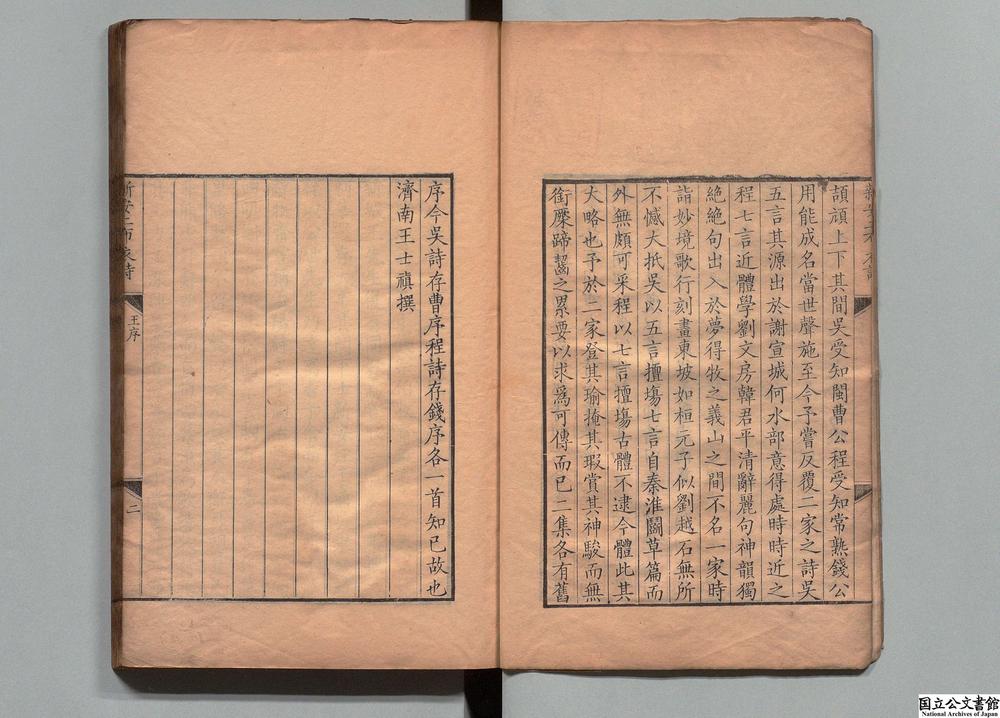 頡頏上下其間吳受知閩曹公程受知常熟錢公
用能成名當世聲施至今予嘗反覆二家之詩吳
五言其源出於謝宣城何水部意得處時時近之
程七言近體學劉文房韓君平清辭麗句神韻獨
絶絶句出入於夢得牧之義山之間不名一家時
詣妙境歌行刻畫東坡如桓元子似劉越石無所
不憾大抵吳以五言擅塲七言自秦淮鬭草篇而
外無頗可采程以七言擅塲古體不逮今體此其
大略也予於二家登其瑜掩其瑕賞其神駿而無
銜橜蹄齧之累要以求爲可傳而已二集各有舊
序今吳詩存曹序程詩存錢序各一首知已故也
濟南王士禛撰
新安二布衣詩
王序
二
国立公文書館
National Archives of Japan